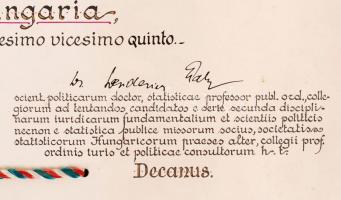 ungaria,
esimo vicesimo quinto.
Dr
scient. politicarum doctor, statisticae professor publ. ord., colle-
giorum ad tentandos candidatos e serie secunda discipli-
narum iuridicarum fundamentalium et scientiis politicis
necnon e statistica publice missorum socius, societatis
statisticorum Hungaricorum praeses alter, collegii prof.
ordinis iuris et politicae consultorum h. t.
Decanus.